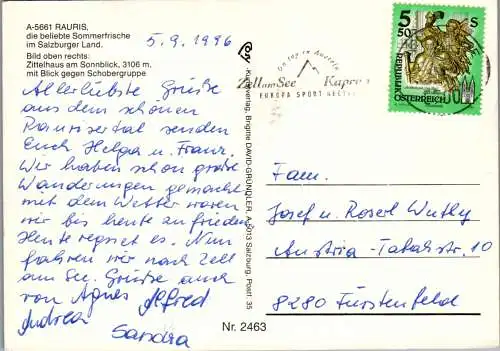 A-5661 RAURIS,
die beliebte Sommerfrische
im Salzburger Land.
Bild oben rechts:
Zittelhaus am Sonnblick, 3106 m.
mit Blick gegen Schobergruppe
5.9.1996
Allerliebste Grüße
aus dem schönen
Raurisertal senden
Euch Helga u. Franz.
Wir haben schon große
Wanderungen gemacht
mit dem Wetter waren
wir bis heute zufrieden
Heute regnet es. Nun
fahren wir nach Zell
am See. Grüße auch
von Agnes Alfred
Andrea
Sandra
Kunstverlag, Brigitte DAVID-GRÜNDLER, A-5013 Salzburg, Postf. 35
Nr. 2463
On top in Austria
Zell am See Kaprun
EUROPA SPORT REGION
5 S
50
REPUBLIK
ÖSTERREICH
Fam.
Josef u. Rosel
Austria-Tabakstr. 10
8280 Fürstenfeld